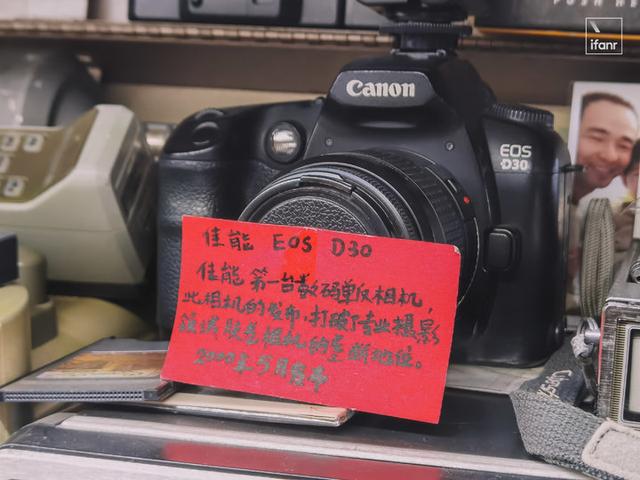 ifanr
Canon
EOS
D30
佳能 EOS D30
佳能第一台数码单反相机，
此相机的发布，打破了专业摄影
领域胶卷相机的垄断地位。
2000年5月发布